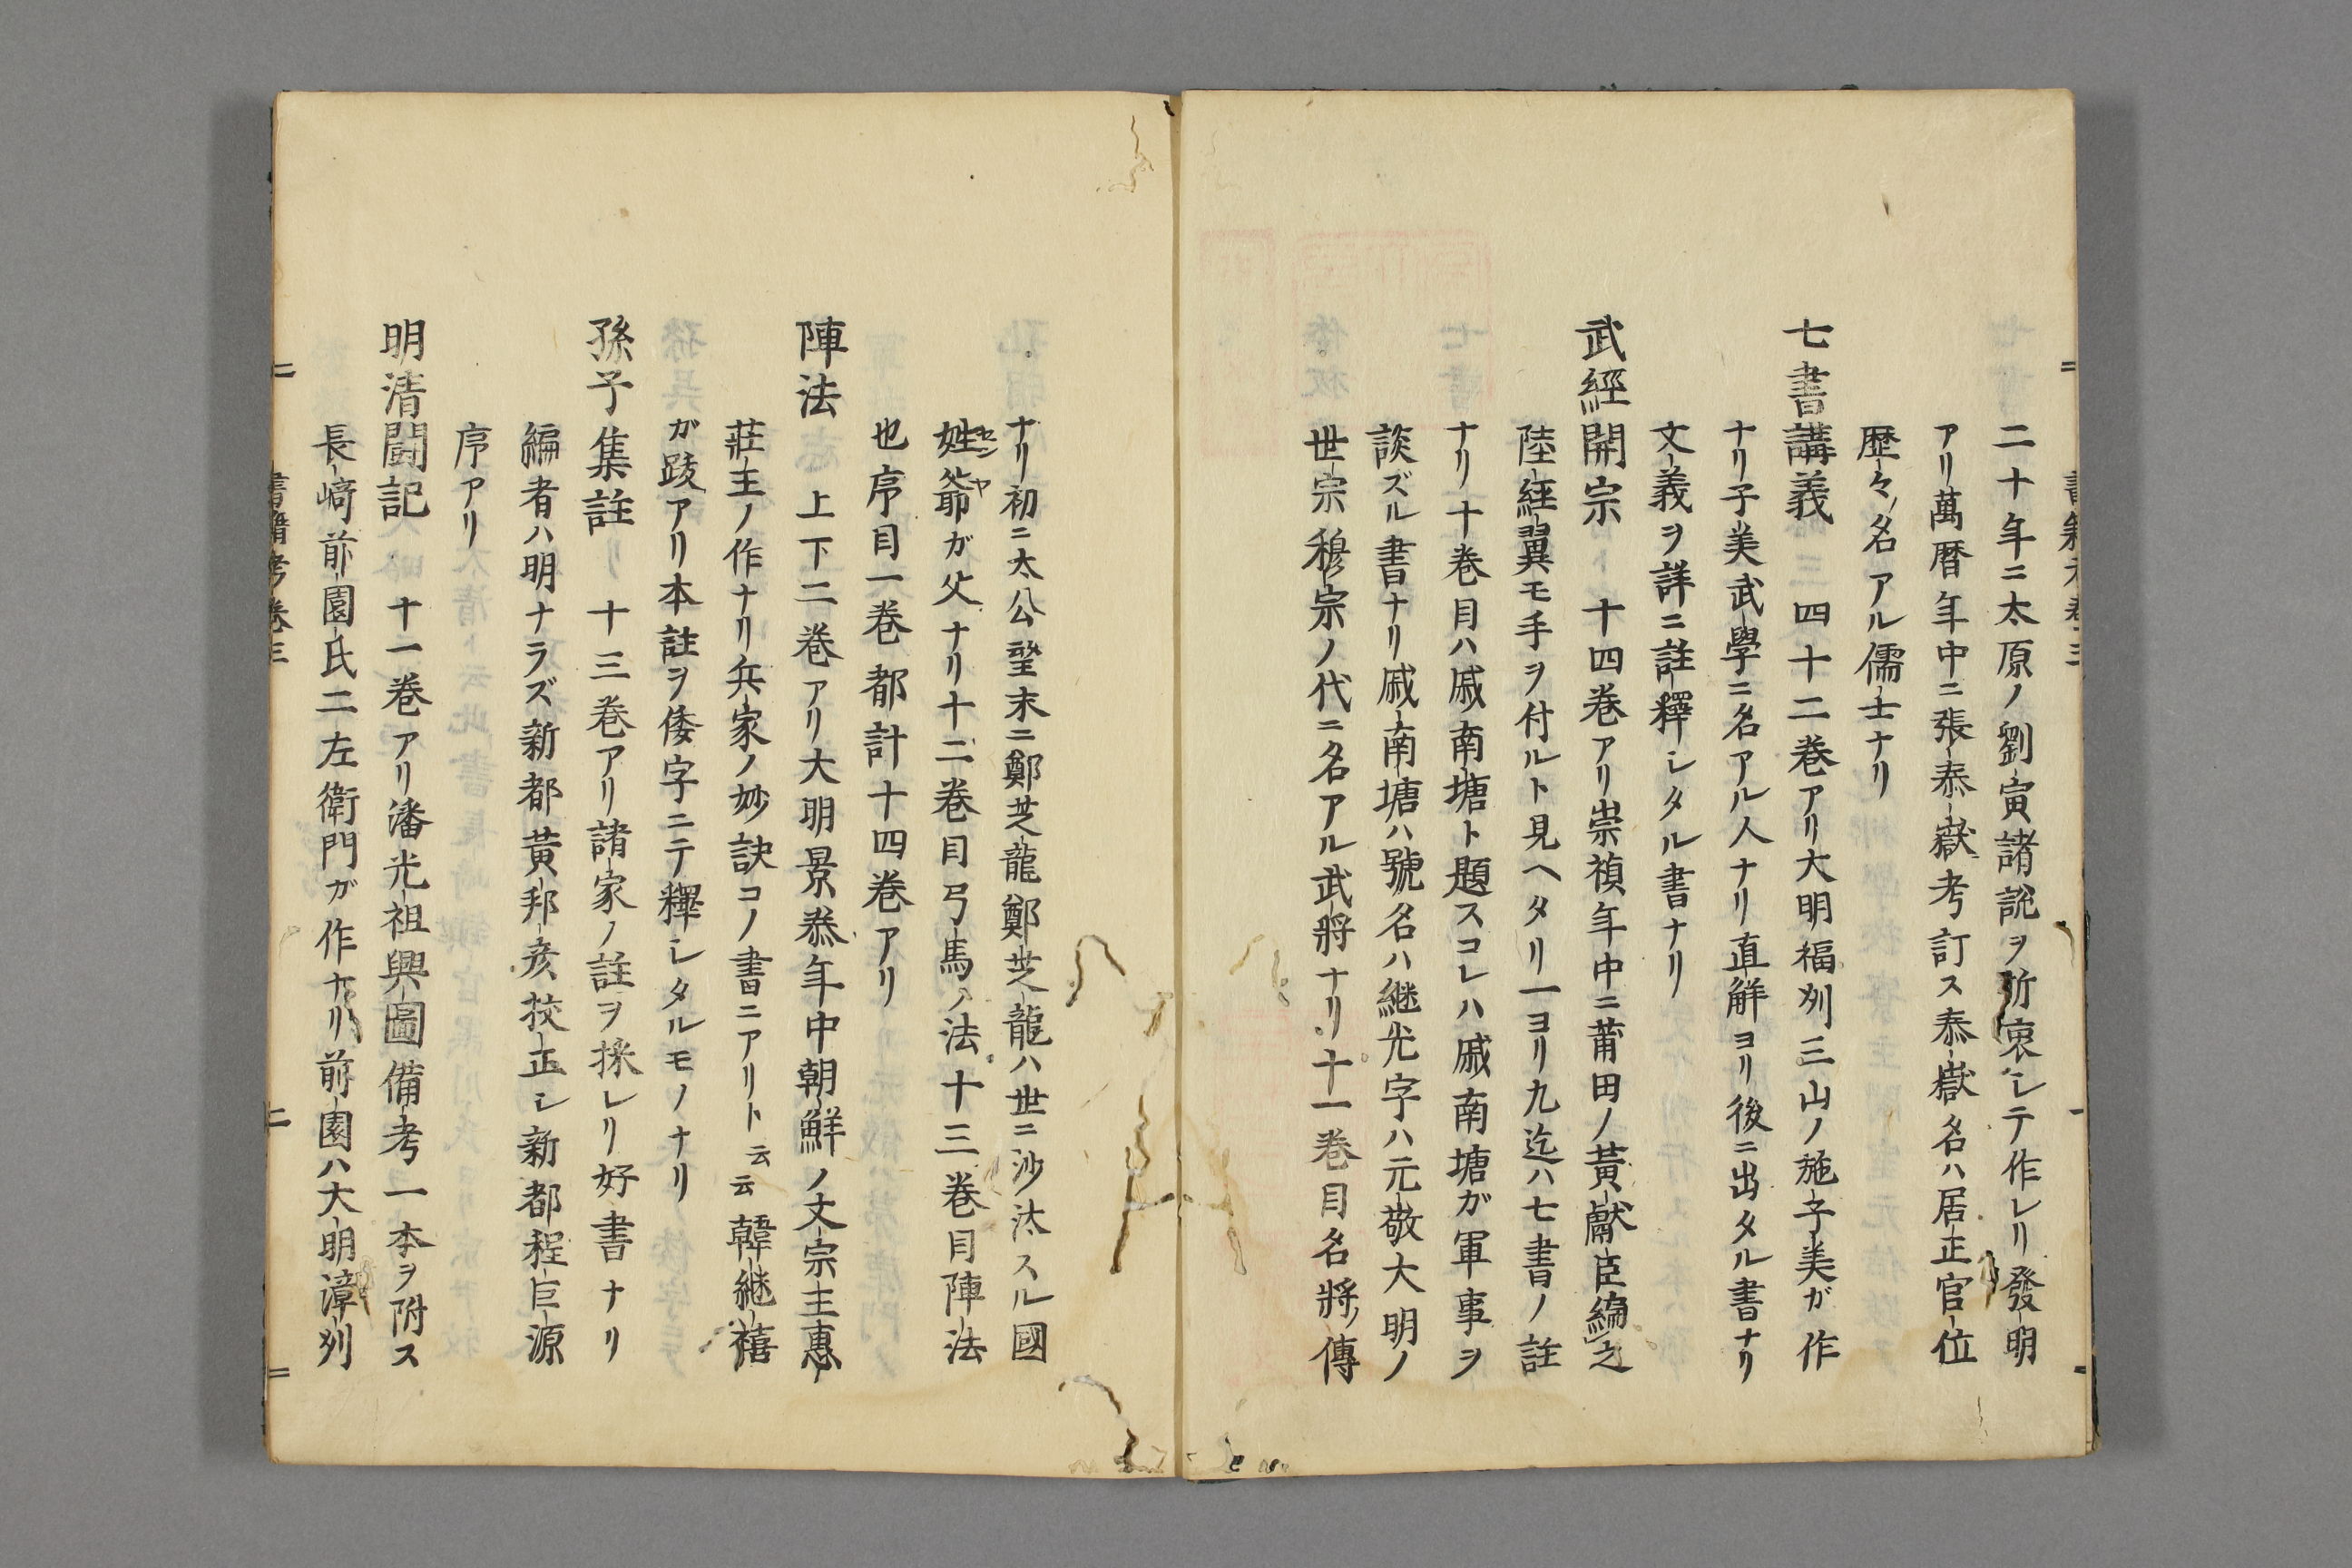 二十年ニ太原ノ劉寅諸説ヲ折衷シテ作レリ發明
アリ萬暦年中ニ張泰嶽考訂ス泰嶽名ハ居正官位
歴々名アル儒士ナリ
七書講義　四十二巻アリ大明福州三山ノ施子美ガ作
ナリ子美武學ニ名アル人ナリ直解ヨリ後ニ出タル書ナリ
文義ヲ詳ニ註釋シタル書ナリ
武經開宗　十四巻アリ崇禎年中ニ莆田ノ黄獻臣編之
陸經翼モ手ヲ付ルト見ヘタリ一ヨリ九迄ハ七書ノ註
ナリ十巻目ハ戚南塘ト題スコレハ戚南塘ガ軍事ヲ
談ズル書ナリ戚南塘ハ號名ハ継光字ハ元敬大明ノ
世宗穆宗ノ代ニ名アル武將ナリ十一巻目名將傳
ナリ初ニ太公望末ニ鄭芝龍鄭芝龍ハ世ニ沙汰スル國
姓爺ガ父ナリ十二巻目弓馬ノ法十三巻目陣法
也序目一巻都計十四巻アリ
陣法　上下二巻アリ大明景泰年中朝鮮ノ文宗主惠
莊主ノ作ナリ兵家ノ妙訣コノ書ニアリト云云韓継禧
ガ跋アリ本註ヲ倭字ニテ釋シタルモノナリ
孫子集註　十三巻アリ諸家ノ註ヲ採レリ好書ナリ
編者ハ明ナラズ新都黄邦彦挍正シ新都程巨源
序アリ
明清闘記　十一巻アリ潘光祖輿圖備考一本ヲ附ス
長﨑前園氏二左衛門ガ作ナリ前園ハ大明漳州
書籍考巻三